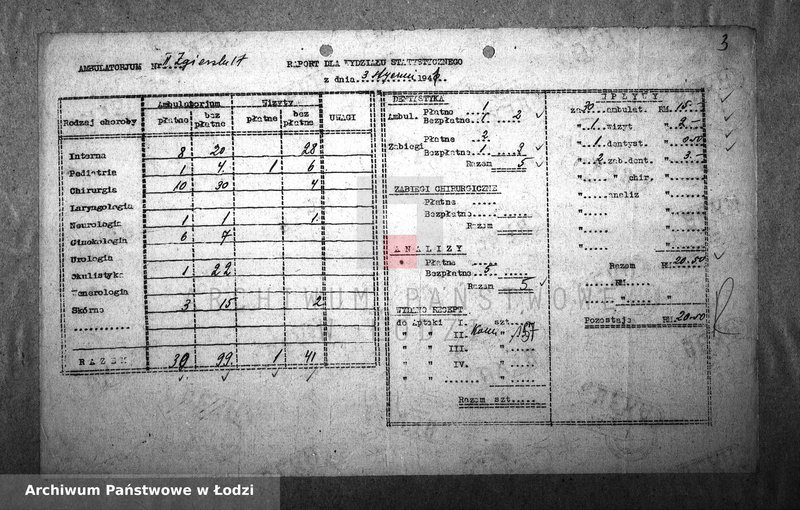 3
AMBULATORJUM Nr II Zgierska 17
RAPORT DLA WYDZIAŁU STATYSTYCZNEGO
z dnia 3 stycznia 194
Rodzaj choroby Ambulatorjum Wizyty UWAGI
płatne bez płatne płatne bez płatne
Interna 8 20 28
Pediatria 1 4 1 6
Chirurgia 10 30 4
Laryngologia
Neurologia 1 1 1
Ginekologia 6 7
Urologia
Okulistyka 1 22
Wenerologia
Skórne 3 15 2
RAZEM 30 99 1 41
DENTYSTYKA
Ambul. Płatne 1
Bezpłatne 1 2
Zabiegi Płatne 2
Bezpłatne 1 3
Razem 5
ZABIEGI CHIRURGICZNE
Płatne .....
Bezpłatne .....
Razem
ANALIZY
Płatne .....
Bezpłatne 5
Razem 5
WYDANO RECEPT
do Apteki I. szt.
" " II. " 157
" " III. "
" " IV. "
" " ....... "
Razem szt.....
WPŁYWY
za 30 ambulat. RM. 15.-
" 1 wizyt " 2.-
" 1 dentyst. " 0.50
" 2 zab.dent. " 3.-
" " chir. "
" analiz "
" "
" "
Razem RM. 20.50
RM.
"
Pozostaje RM. 20.50
ARCHIWUM PAŃSTWOWE
W ŁODZI
Archiwum Państwowe w Łodzi